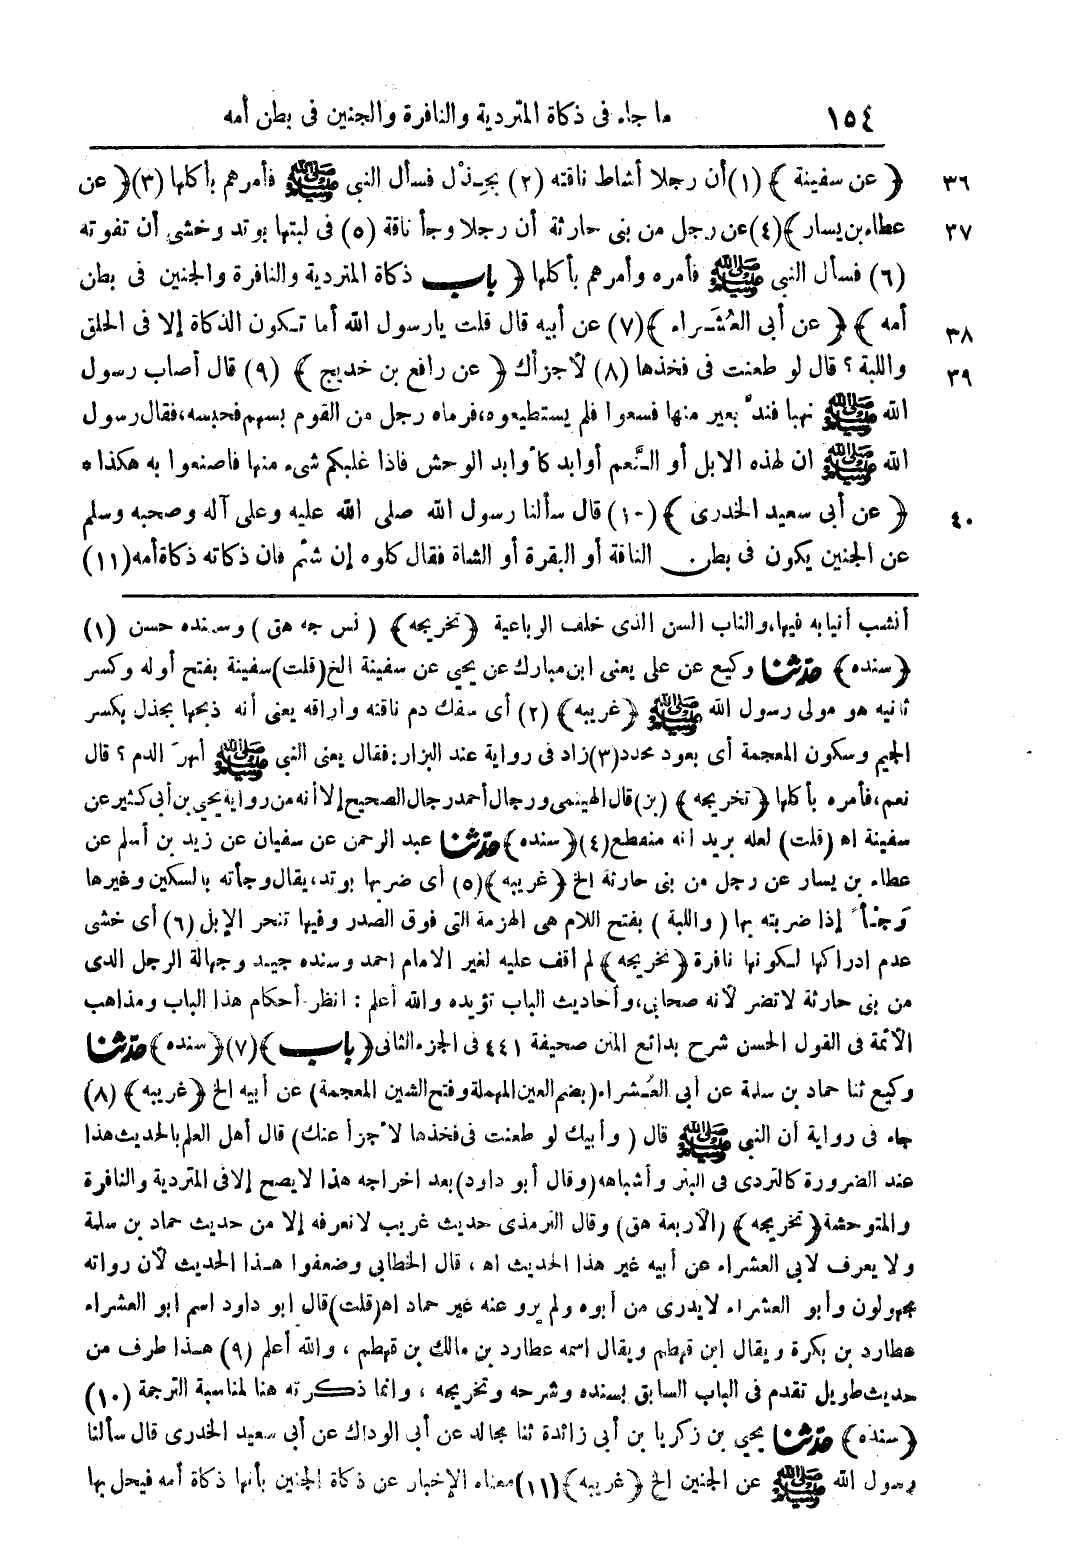 ١٥٤ ما جاء فى ذكاة المتردية والنافرة والجنين فى بطن أمه
٣٦ ﴿ عن سفينة ﴾ (١) أن رجلا أشاط ناقته (٢) بجِـذْل فسأل النبي ﷺ فأمرهم بأكلها (٣) ﴿ عن
٣٧ عطاء بن يسار ﴾ (٤) عن رجل من بنى حارثة أن رجلا وجأ ناقة (٥) فى لبتها بوتد وخشى أن تفوته
(٦) فسأل النبي ﷺ فأمره وأمرهم بأكلها ﴿ باب ذكاة المتردية والنافرة والجنين فى بطن
٣٨ أمه ﴾ ﴿ عن أبى العُشَـراء ﴾ (٧) عن أبيه قال قلت يارسول الله أما تـكون الذكاة إلا فى الحلق
٣٩ واللبة ؟ قال لو طعنت فى فخذها (٨) لأجزأك ﴿ عن رافع بن خديج ﴾ (٩) قال أصاب رسول
الله ﷺ نهبا فندَّ بعير منها فسعوا فلم يستطيعوه، فرماه رجل من القوم بسهم فحبسه، فقال رسول
الله ﷺ ان لهذه الابل أو النَّعم أوابد كأوابد الوحش فاذا غلبكم شىء منها فاصنعوا به هكذا *
٤٠ ﴿ عن أبى سعيد الخدرى ﴾ (١٠) قال سألنا رسول الله صلى الله عليه وعلى آله وصحبه وسلم
عن الجنين يكون فى بطن الناقة أو البقرة أو الشاة فقال كلوه إن شئتم فان ذكاته ذكاة أمه (١١)
أنشب أنيابه فيها، والناب السن الذى خلف الرباعية ﴿ تخريجه ﴾ ( نس جه هق ) وسنده حسن (١)
﴿ سنده ﴾ حدّثنا وكيع عن على يعنى ابن مبارك عن يحيى عن سفينة الخ (قلت) سفينة بفتح أوله وكسر
ثانيه هو مولى رسول الله ﷺ ﴿ غريبه ﴾ (٢) أى سفك دم ناقته وأراقه يعنى أنه ذبحها بجذل بكسر
الجيم وسكون المعجمة أى بعود محدد (٣) زاد فى رواية عند البزار: فقال يعنى النبي ﷺ أنهرَ الدم ؟ قال
نعم، فأمره بأكلها ﴿ تخريجه ﴾ (بز) قال الهيثمى ورجال أحمد رجال الصحيح إلا أنه من رواية يحيى بن أبى كثير عن
سفينة اه (قلت) لعله يريد انه منقطع (٤) ﴿ سنده ﴾ حدّثنا عبد الرحمن عن سفيان عن زيد بن أسلم عن
عطاء بن يسار عن رجل من بنى حارثة الخ ﴿ غريبه ﴾ (٥) أى ضربها بوتد، يقال وجأته بالسكين وغيرها
وَجْـأً إذا ضربته بها ( واللبة ) بفتح اللام هى الهزمة التى فوق الصدر وفيها تنحر الإبل (٦) أى خشى
عدم ادراكها لـكونها نافرة ﴿ تخريجه ﴾ لم أقف عليه لغير الامام احمد وسنده جيـد وجهالة الرجل الذى
من بنى حارثة لا تضر لأنه صحابى، وأحاديث الباب تؤيده والله أعلم : انظر أحكام هذا الباب ومذاهب
الأئمة فى القول الحسن شرح بدائع المنن صحيفة ٤٤١ فى الجزء الثانى ﴿ باب ﴾ (٧) ﴿ سنده ﴾ حدّثنا
وكيع ثنا حماد بن سلمة عن أبى العُشراء (بضم العين المهملة وفتح الشين المعجمة) عن أبيه الخ ﴿ غريبه ﴾ (٨)
جاء فى رواية أن النبي ﷺ قال ( وأبيك لو طعنت فى فخذها لأجزأ عنك) قال أهل العلم بالحديث هذا
عند الضرورة كالتردى فى البئر وأشباهه (وقال أبو داود) بعد اخراجه هذا لا يصح إلا فى المتردية والنافرة
والمتوحشة ﴿ تخريجه ﴾ (الأربعة هق) وقال الترمذى حديث غريب لا نعرفه إلا من حديث حماد بن سلمة
ولا يعرف لابى العشراء عن أبيه غير هذا الحديث اه ، قال الخطابى وضعفوا هـذا الحديث لأن رواته
مجهولون وأبو العشراء لا يدرى من أبوه ولم يرو عنه غير حماد اه (قلت) قال ابو داود اسم ابو العشراء
عطارد بن بكرة ويقال ابن قهطم ويقال اسمه عطارد بن مالك بن قهطم ، والله أعلم (٩) هـذا طرف من
حديث طويل تقدم فى الباب السابق بسنده وشرحه وتخريجه ، وانما ذكرته هنا لمناسبة الترجمة (١٠)
﴿ سنده ﴾ حدّثنا يحيى بن زكريا بن أبى زائدة ثنا مجالد عن أبى الوداك عن أبى سعيد الخدرى قال سألنا
رسول الله ﷺ عن الجنين الخ ﴿ غريبه ﴾ (١١) معناه الإخبار عن ذكاة الجنين بأنها ذكاة أمه فيحل بها